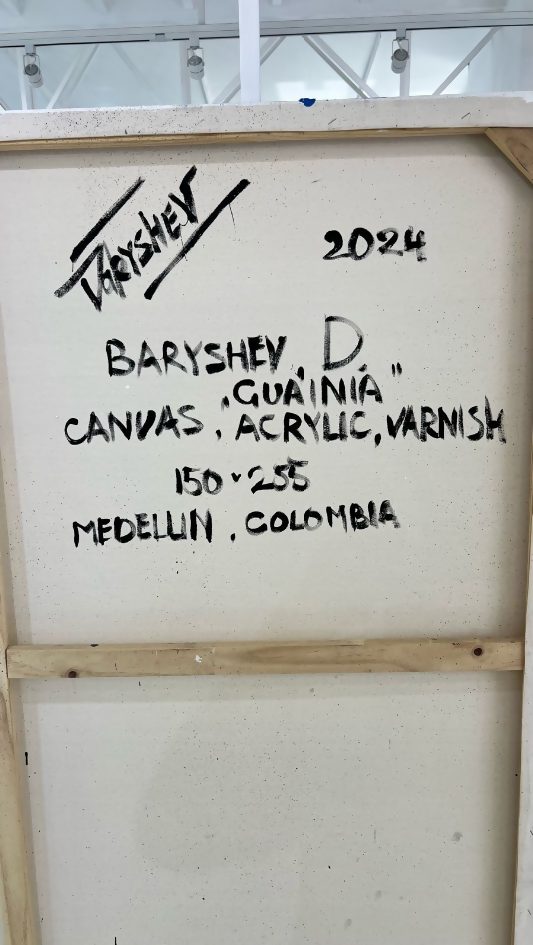 BARYSHEV
2024
BARYSHEV, D.
„GUAINIA"
CANVAS, ACRYLIC, VARNISH
150 × 255
MEDELLIN, COLOMBIA